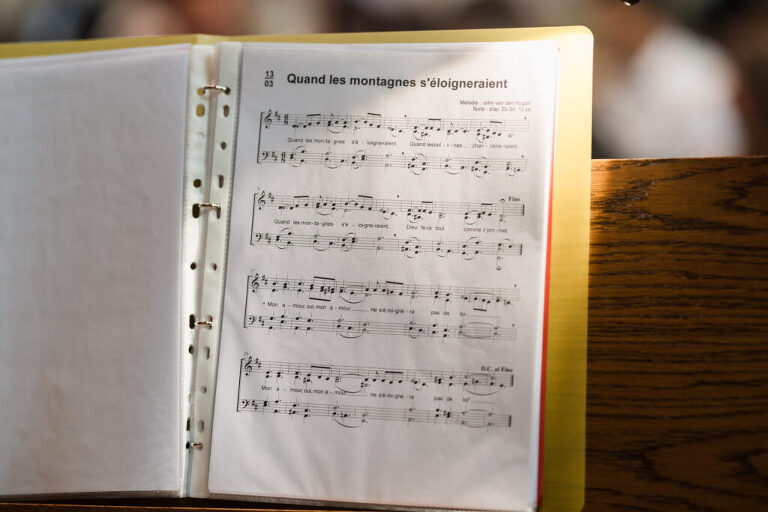 13
03
Quand les montagnes s'éloigneraient
Mélodie : John van den Hogen
Texte : d'ap. Es 54, 10 ss
Quand les mon-ta-gnes s'é-loigne-raient. Quand les col-li-nes chan-celle-raient
Quand les mon-ta-gnes s'é-loigne-raient, Dieu fe-ra tout comme il pro-met.
Fine
Mon a-mour, oui, mon a-mour ne s'é-loi-gne-ra pas de toi
Mon a-mour, oui, mon a-mour ne s'é-loi-gne-ra pas de toi"
D.C. al Fine